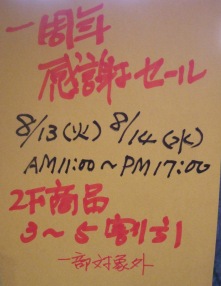 一周年
感謝セール
8/13(火) 8/14(水)
AM11:00～PM17:00
2F商品
3～5割引
一部対象外